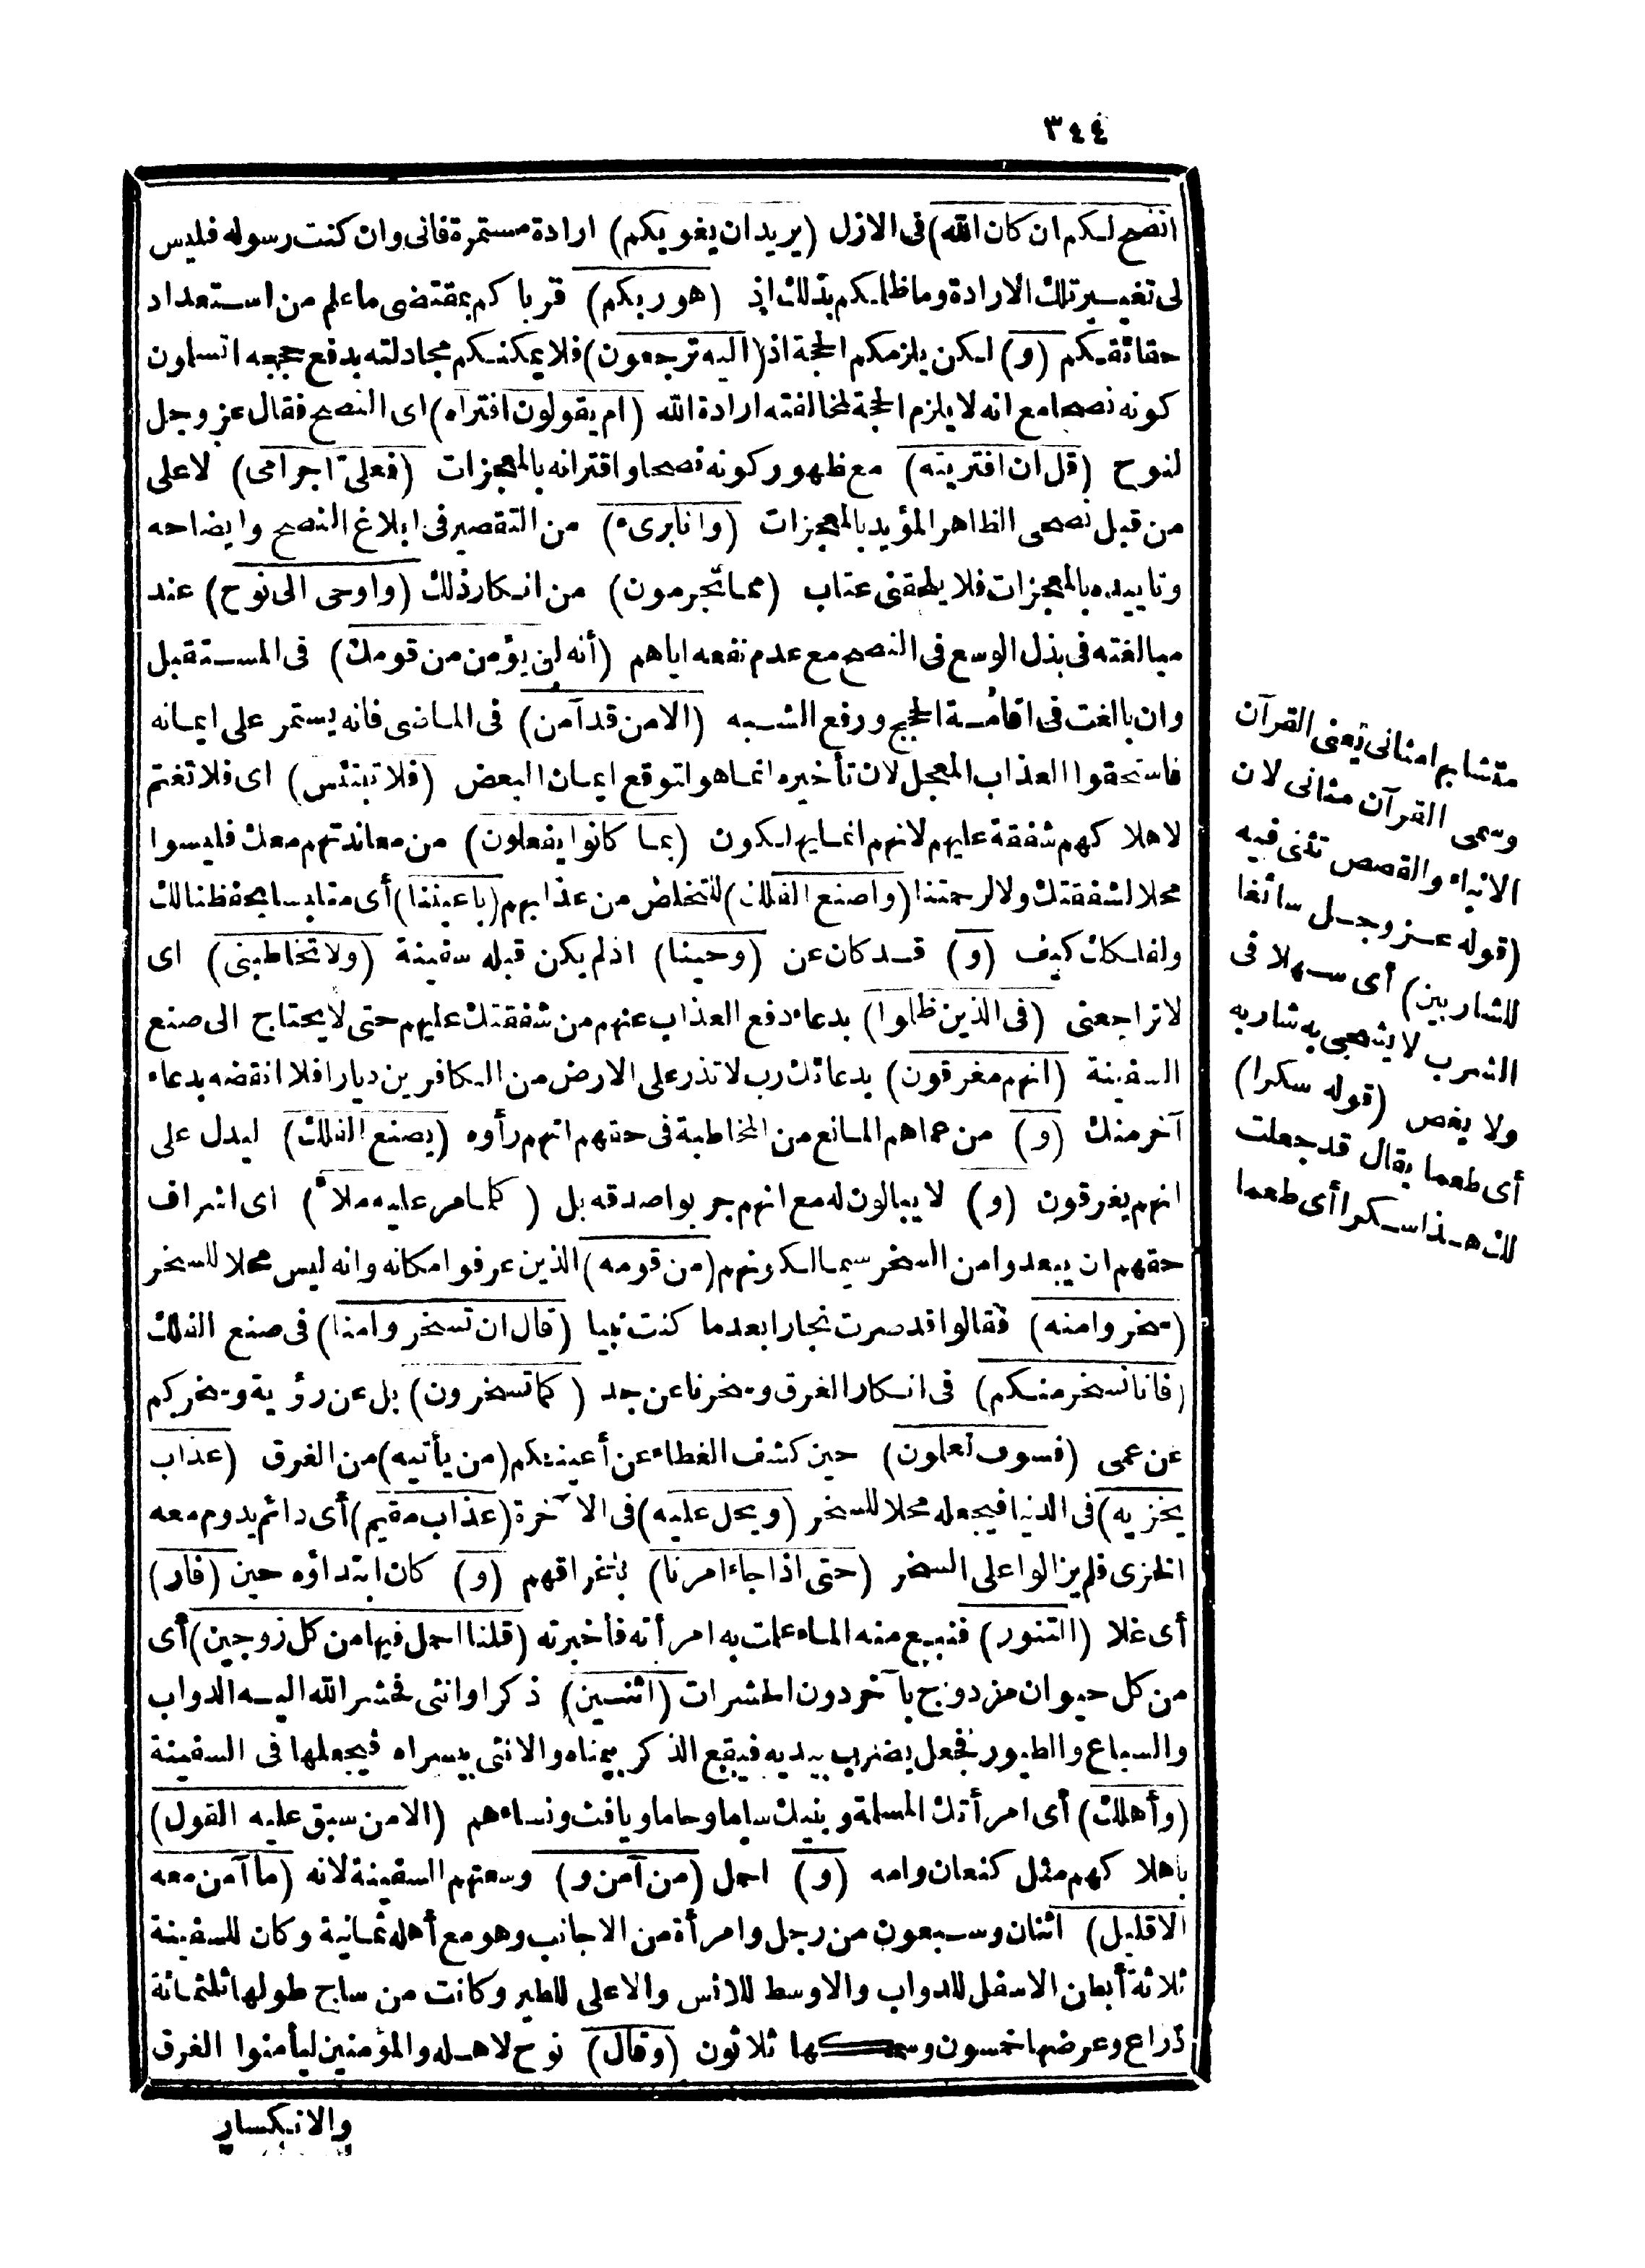 ٣٤٤
انصح لكم ان كان الله) فى الازل (يريد ان يغويكم) ارادة مستمرة فانى وان كنت رسوله فليس
لى تغيير تلك الارادة وما ظلمكم بذلك اذ (هو ربكم) قربا كم بمقتضى ما علم من استعداد
حقائقكم (و) لكن يلزمكم الحجة اذ (اليه ترجعون) فلا يمكنكم مجادلته بدفع حججه اتسلمون
كونه نصحا مع انه لا يلزم الحجة لمخالفته ارادة الله (ام يقولون افتراه) اى النصح فقال عز وجل
لنوح (قل ان افتريته) مع ظهور كونه نصحا واقترانه بالمعجزات (فعلىّ اجرامى) لا على
من قبل نصحى الظاهر المؤيد بالمعجزات (وانا برىء) من التقصير فى ابلاغ النصح وايضاحه
وتاييده بالمعجزات فلا يلحقنى عتاب (مما تجرمون) من انكار ذلك (واوحى الى نوح) عند
مبالغته فى بذل الوسع فى النصح مع عدم نفعه اياهم (أنه لن يؤمن من قومك) فى المستقبل
وان بالغت فى اقامة الحجج ورفع الشبه (الا من قد آمن) فى الماضى فانه يستمر على ايمانه
فاستحقوا العذاب المعجل لان تأخيره انما هو لتوقع ايمان البعض (فلا تبتئس) اى فلا تغتم
لاهلا كهم شفقة عليهم لانهم انما يهلكون (بما كانوا يفعلون) من معاندتهم معك فليسوا
محلا لشفقتك ولا لرحمتنا (واصنع الفلك) للتخلص من عذابهم (باعيننا) أى متلبسا بحفظنا لك
ولفلكك كيف (و) قد كان عن (وحينا) اذ لم يكن قبله سفينة (ولا تخاطبنى) اى
لا تراجعنى (فى الذين ظلموا) بدعاء دفع العذاب عنهم من شفقتك عليهم حتى لا يحتاج الى صنع
السفينة (انهم مغرقون) بدعائك رب لا تذر على الارض من الكافرين ديارا فلا انقضه بدعاء
آخر منك (و) من عماهم المانع من المخاطبة فى حقهم انهم رأوه (يصنع الفلك) ليدل على
انهم يغرقون (و) لا يبالون له مع انهم جربوا صدقه بل (كلما مر عليه ملأ) اى اشراف
حقهم ان يبعدوا من السخر سيما لكونهم (من قومه) الذين عرفوا مكانه وانه ليس محلا للسخر
(سخروا منه) فقالوا قد صرت نجارا بعد ما كنت نبيا (قال ان تسخروا منا) فى صنع الفلك
(فانا نسخر منكم) فى انكار الغرق وسخرنا عن جد (كما تسخرون) بل عن رؤية وسخركم
عن عمى (فسوف تعلمون) حين كشف الغطاء عن أعينكم (من يأتيه) من الغرق (عذاب
يخزيه) فى الدنيا فيجعله محلا للسخر (ويحل عليه) فى الآخرة (عذاب مقيم) أى دائم يدوم معه
الخزى فلم يزالوا على السخر (حتى اذا جاء امرنا) باغراقهم (و) كان ابتداؤه حين (فار)
أى غلا (التنور) فنبع منه الماء علمت به امرأته فأخبرته (قلنا احمل فيها من كل زوجين) أى
من كل حيوان مزدوج بآخر دون الحشرات (اثنين) ذكرا وانثى فحشر الله اليه الدواب
والسباع والطيور فجعل يضرب بيديه فيقع الذكر بيمناه والانثى بيسراه فيجعلها فى السفينة
(وأهلك) أى امرأتك المسلمة وبنيك ساما وحاما ويافث ونساءهم (الا من سبق عليه القول)
باهلا كهم مثل كنعان وامه (و) احمل (من آمن و) وسعتهم السفينة لانه (ما آمن معه
الا قليل) اثنان وسبعون من رجل وامرأة من الاجانب وهو مع أهله ثمانية وكان للسفينة
ثلاثة أبطن الاسفل للدواب والاوسط للانس والاعلى للطير وكانت من ساج طولها ثلثمائة
ذراع وعرضها خمسون وسمكها ثلاثون (وقال) نوح لاهله والمؤمنين ليأمنوا الغرق
والانكسار
متشابها مثانى يعنى القرآن
وسمى القرآن مثانى لان
الانباء والقصص تثنى فيه
(قوله عز وجل سائغا
للشاربين) أى سهلا فى
الشرب لا يشجى به شاربه
ولا يغص (قوله سكرا)
أى طعما يقال قد جعلت
لك هذا سكرا أى طعما